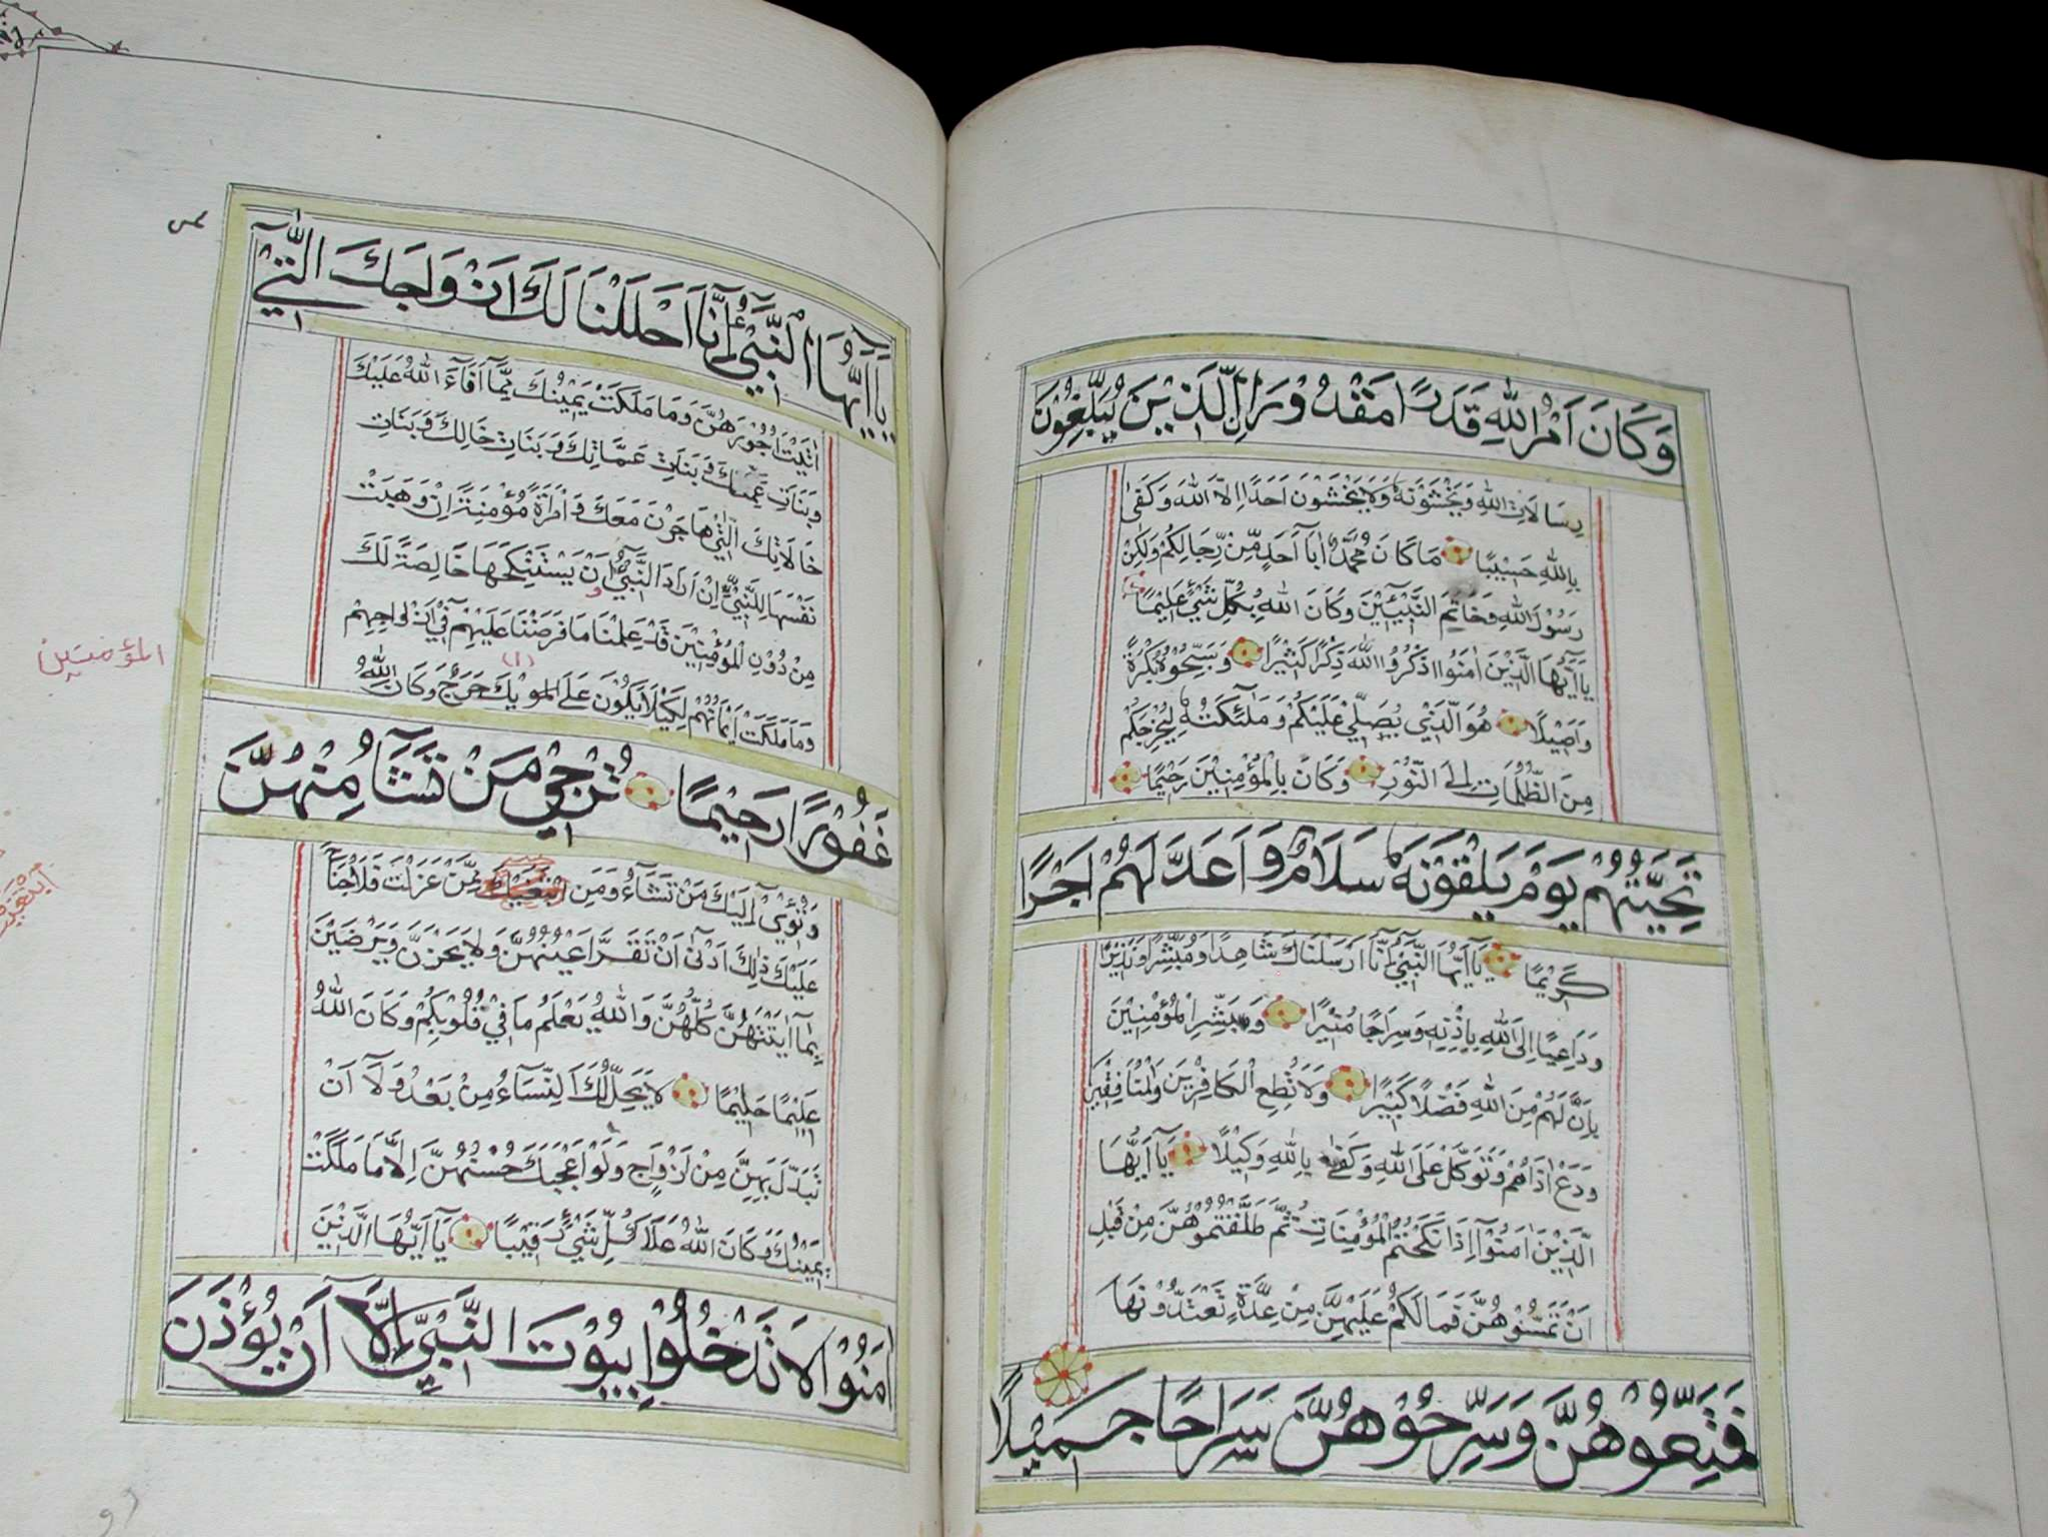 وَكَانَ اَمْرُ اللهِ قَدَرًا مَقْدُوْرَا الَّذِيْنَ يُبَلِّغُوْنَ
رِسَالَاتِ اللهِ وَيَخْشَوْنَهُ وَلَا يَخْشَوْنَ اَحَدًا اِلَّا اللهَ وَكَفٰى
بِاللهِ حَسِيْبًا مَا كَانَ مُحَمَّدٌ اَبَآ اَحَدٍ مِّنْ رِّجَالِكُمْ وَلٰكِنْ
رَسُوْلَ اللهِ وَخَاتَمَ النَّبِيّٖنَ وَكَانَ اللهُ بِكُلِّ شَيْءٍ عَلِيْمًا
يَآ اَيُّهَا الَّذِيْنَ اٰمَنُوا اذْكُرُوا اللهَ ذِكْرًا كَثِيْرًا وَسَبِّحُوْهُ بُكْرَةً
وَاَصِيْلًا هُوَ الَّذِيْ يُصَلِّيْ عَلَيْكُمْ وَمَلٰٓئِكَتُهُ لِيُخْرِجَكُمْ
مِنَ الظُّلُمَاتِ اِلَى النُّوْرِ وَكَانَ بِالْمُؤْمِنِيْنَ رَحِيْمًا
تَحِيَّتُهُمْ يَوْمَ يَلْقَوْنَهُ سَلَامٌ وَاَعَدَّ لَهُمْ اَجْرًا
كَرِيْمًا يَآ اَيُّهَا النَّبِيُّ اِنَّآ اَرْسَلْنَاكَ شَاهِدًا وَمُبَشِّرًا وَنَذِيْرًا
وَدَاعِيًا اِلَى اللهِ بِاِذْنِهِ وَسِرَاجًا مُنِيْرًا وَبَشِّرِ الْمُؤْمِنِيْنَ
بِاَنَّ لَهُمْ مِنَ اللهِ فَضْلًا كَبِيْرًا وَلَا تُطِعِ الْكَافِرِيْنَ وَالْمُنَافِقِيْنَ
وَدَعْ اَذَاهُمْ وَتَوَكَّلْ عَلَى اللهِ وَكَفٰى بِاللهِ وَكِيْلًا يَآ اَيُّهَا
الَّذِيْنَ اٰمَنُوْآ اِذَا نَكَحْتُمُ الْمُؤْمِنَاتِ ثُمَّ طَلَّقْتُمُوْهُنَّ مِنْ قَبْلِ
اَنْ تَمَسُّوْهُنَّ فَمَا لَكُمْ عَلَيْهِنَّ مِنْ عِدَّةٍ تَعْتَدُّوْنَهَا
فَمَتِّعُوْهُنَّ وَسَرِّحُوْهُنَّ سَرَاحًا جَمِيْلًا
يَآ اَيُّهَا النَّبِيُّ اِنَّآ اَحْلَلْنَا لَكَ اَزْوَاجَكَ الّٰتِيْ
اٰتَيْتَ اُجُوْرَهُنَّ وَمَا مَلَكَتْ يَمِيْنُكَ مِمَّآ اَفَآءَ اللهُ عَلَيْكَ
وَبَنَاتِ عَمِّكَ وَبَنَاتِ عَمَّاتِكَ وَبَنَاتِ خَالِكَ وَبَنَاتِ
خَالَاتِكَ الّٰتِيْ هَاجَرْنَ مَعَكَ وَامْرَاَةً مُؤْمِنَةً اِنْ وَهَبَتْ
نَفْسَهَا لِلنَّبِيِّ اِنْ اَرَادَ النَّبِيُّ اَنْ يَسْتَنْكِحَهَا خَالِصَةً لَكَ
مِنْ دُوْنِ الْمُؤْمِنِيْنَ قَدْ عَلِمْنَا مَا فَرَضْنَا عَلَيْهِمْ فِيْ اَزْوَاجِهِمْ
وَمَا مَلَكَتْ اَيْمَانُهُمْ لِكَيْلَا يَكُوْنَ عَلَيْكَ حَرَجٌ وَكَانَ اللهُ
غَفُوْرًا رَحِيْمًا تُرْجِيْ مَنْ تَشَآءُ مِنْهُنَّ
وَتُؤْيْ اِلَيْكَ مَنْ تَشَآءُ وَمَنِ ابْتَغَيْتَ مِمَّنْ عَزَلْتَ فَلَا جُنَاحَ
عَلَيْكَ ذٰلِكَ اَدْنٰى اَنْ تَقَرَّ اَعْيُنُهُنَّ وَلَا يَحْزَنَّ وَيَرْضَيْنَ
بِمَآ اٰتَيْتَهُنَّ كُلُّهُنَّ وَاللهُ يَعْلَمُ مَا فِيْ قُلُوْبِكُمْ وَكَانَ اللهُ
عَلِيْمًا حَلِيْمًا لَا يَحِلُّ لَكَ النِّسَآءُ مِنْ بَعْدُ وَلَآ اَنْ
تَبَدَّلَ بِهِنَّ مِنْ اَزْوَاجٍ وَلَوْ اَعْجَبَكَ حُسْنُهُنَّ اِلَّا مَا مَلَكَتْ
يَمِيْنُكَ وَكَانَ اللهُ عَلٰى كُلِّ شَيْءٍ رَقِيْبًا يَآ اَيُّهَا الَّذِيْنَ
اٰمَنُوْا لَا تَدْخُلُوْا بُيُوْتَ النَّبِيِّ اِلَّآ اَنْ يُؤْذَنَ
المؤمنين